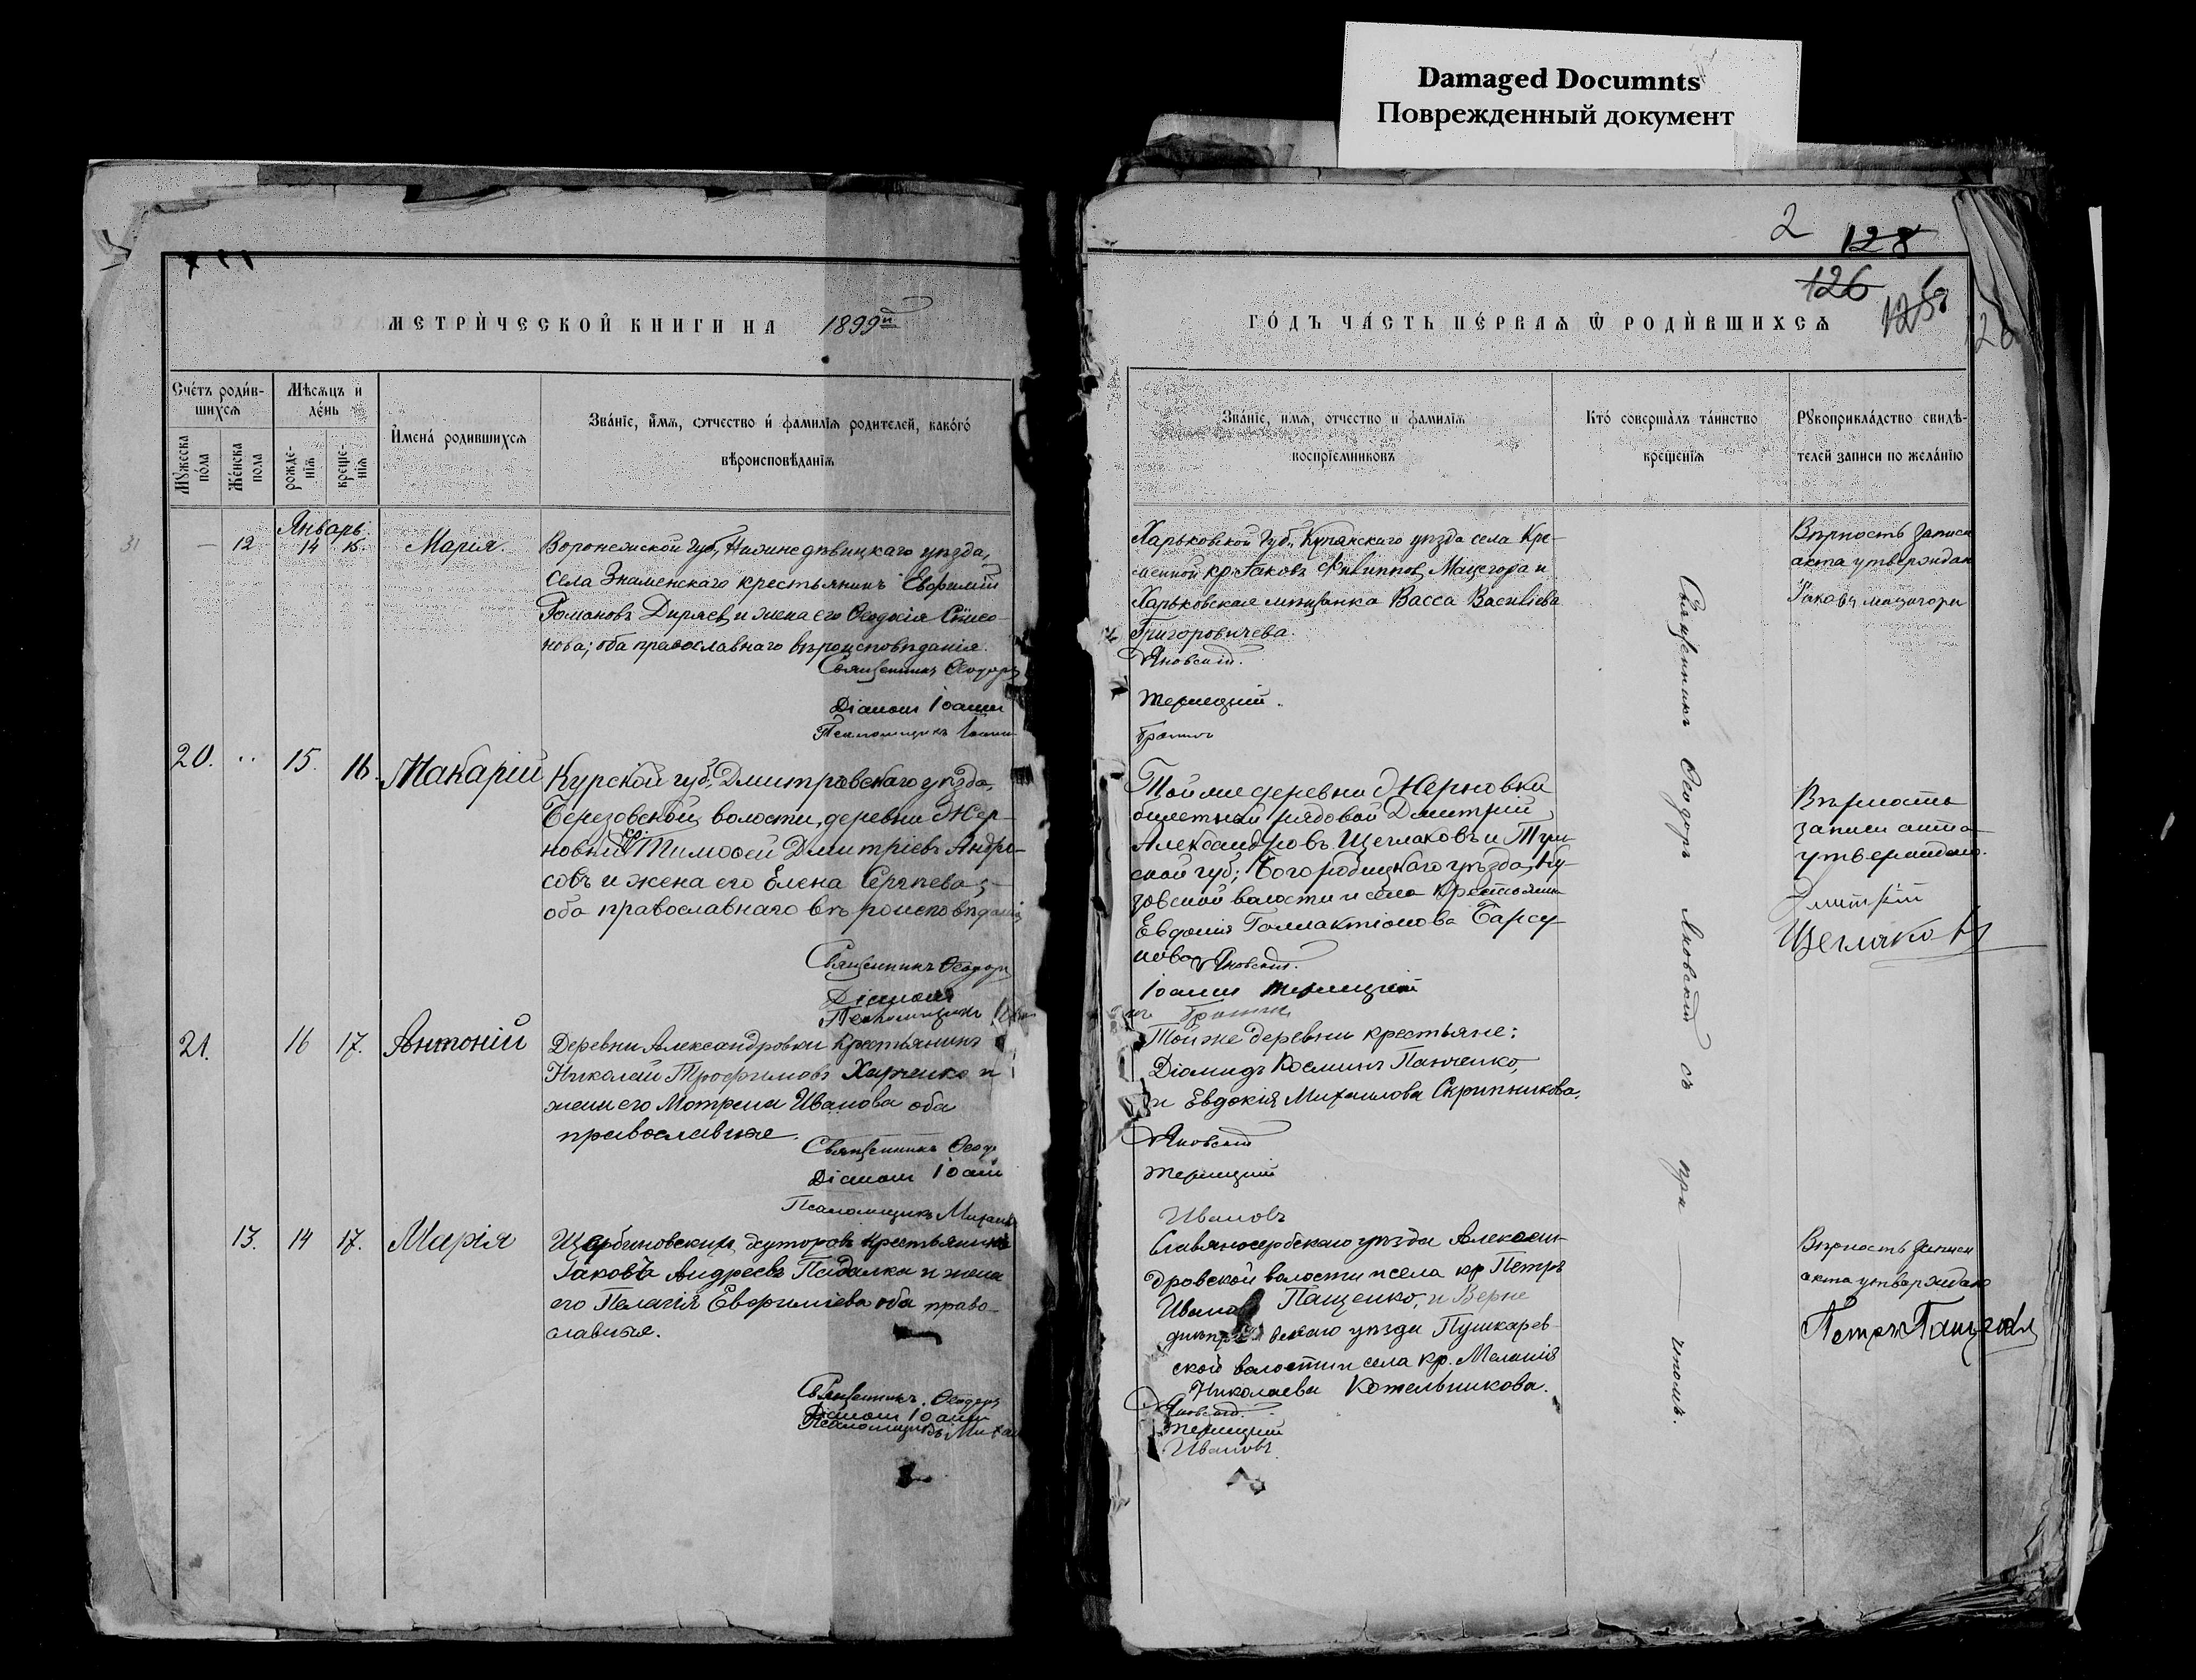 Damaged Documnts
Поврежденный документ
2 128
126
МЕТРИ́ЧЕСКОЙ КНИГИ НА 1899й
ГО́ДЪ ЧА́СТЬ ПЕ́РВАѦ Ѿ РОДИ́ВШИХСѦ
Сче́тъ роди́в-
шихсѧ
Мѣсѧцъ и
де́нь
Мꙋжеска
по́ла
Же́нска
пола
рожде-
нїѧ
креще-
нїѧ
И҆мена́ родившихсѧ
Зва́нїе, и҆́мѧ, ѻтчество и҆ фамилїѧ родителей, како́го
вѣроисповѣ́данїѧ
Зва́нїе, имѧ, отчество и фамилїѧ
воспрїемниковъ
Кто́ соверша́лъ та́инство
креще́нїѧ
Рꙋкоприкла́дство свидѣ-
телей записи по жела́нїю
31
Январь
— 12 14 15. Марія.
Воронежской губ, Нижнедѣвицкаго уѣзда,
Села Знаменскаго крестьянинъ Евфимій
Романовъ Диряевъ и жена его Ѳеодосія
нова; оба православнаго вѣроисповѣданія.
Священникъ Ѳеодоръ
Діаконъ Іоаннъ
Псаломщикъ Іоаннъ
Харьковской Губ., Купянскаго уѣзда села Кре-
менной кр. Іаковъ Филипповъ Мацегора и
Харьковская мѣщанка Васса Васильева
Григоровичева.
Яновскій.
Вѣрность записи
акта утверждаю
Іаковъ
20. 15. 16. Макарій
Курской губ., Дмитровскаго уѣзда,
Березовской волости, деревни Жер-
новки кр. Тимоѳей Дмитріевъ Андро-
совъ и жена его Елена Сергѣева;
оба православнаго вѣроисповѣданія
Священникъ Ѳеодоръ
Діаконъ
Псаломщикъ
Той же деревни Жерновки
билетный рядовой Дмитрій
Александровъ Щегляковъ и Туль-
ской губ; Богородицкаго уѣзда,
волости и села крестьянка
Евдокія Галактіонова Барсу-
кова Яновскій.
Іоаннъ
Вѣрность
записи акта
утверждаю.
Дмитрій
Щегляковъ
21. 16 17. Антоній
Деревни Александровки крестьянинъ
Николай Трофимовъ Харченко и
жена его Матрена Иванова оба
православные.
Священникъ Ѳеодоръ
Діаконъ Іоаннъ
Псаломщикъ Михаилъ
Той же деревни крестьяне:
Діомидъ Косминъ Панченко,
и Евдокія Михаилова Скрипникова.
Яновскій
Ивановъ
13. 14 17. Марія
Щербиновскихъ хуторовъ крестьянинъ
Іаковъ Андреевъ Падалка и жена
его Пелагія Евфиміева оба право-
славные.
Священникъ Ѳеодоръ
Діаконъ Іоаннъ
Псаломщикъ Михаилъ
Славяносербскаго уѣзда Алексан-
дровской волости и села кр Петръ
Ивановъ Пащенко, и Верхне
днѣпровскаго уѣзда Пушкарев-
ской волости и села кр. Меланія
Николаева Котельникова.
Яновскій.
Ивановъ.
Вѣрность записи
акта утверждаю
Петръ Пащенко
Священникъ Ѳеодоръ Яновскій съ при — чтомъ.